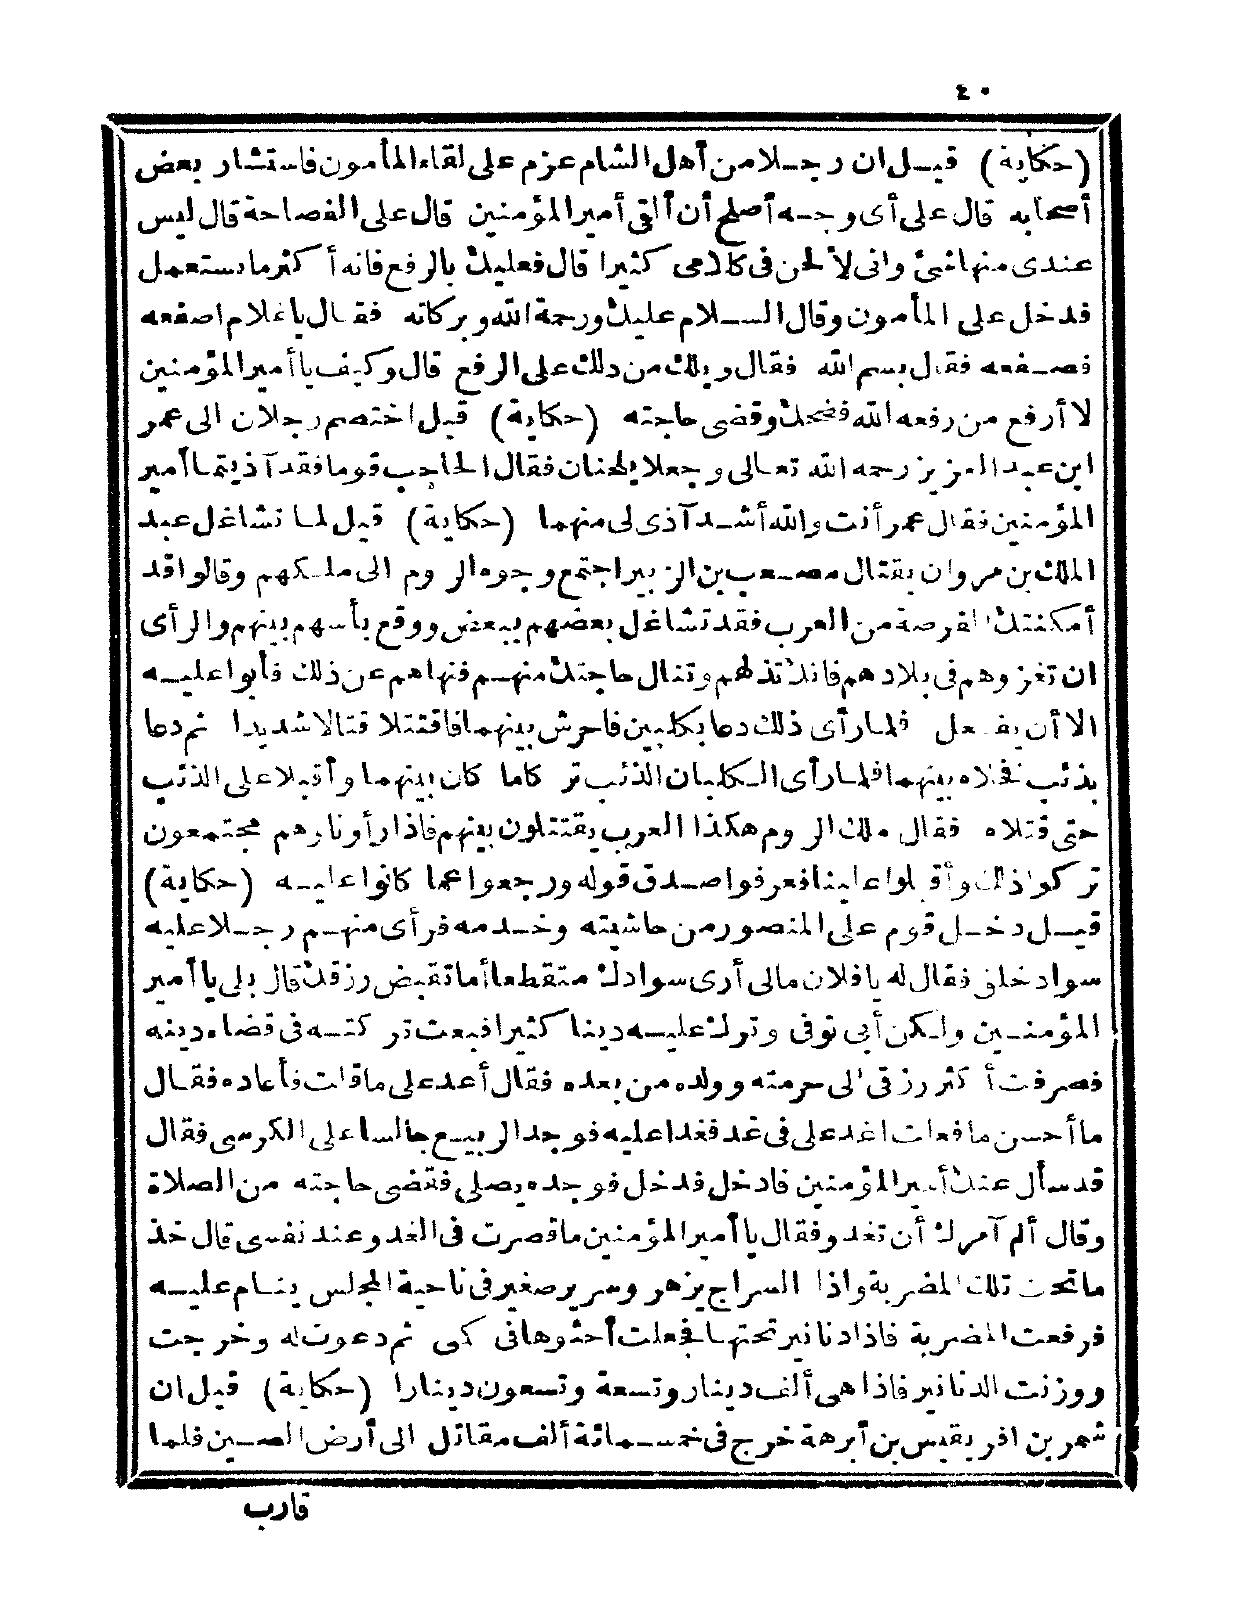 ٤٠
(حكاية) قيل ان رجلا من أهل الشام عزم على لقاء المأمون فاستشار بعض
أصحابه قال على أى وجه أصلح أن ألقى أمير المؤمنين قال على الفصاحة قال ليس
عندى منها شئ وانى لألحن فى كلامى كثيرا قال فعليك بالرفع فانه أكثر ما يستعمل
فدخل على المأمون وقال السلام عليك ورحمة الله وبركاته فقال يا غلام اصفعه
فصفعه فقال بسم الله فقال ويلك من دلك على الرفع قال وكيف يا أمير المؤمنين
لا أرفع من رفعه الله فضحك وقضى حاجته (حكاية) قيل اختصم رجلان الى عمر
ابن عبد العزيز رحمه الله تعالى وجعلا يلحنان فقال الحاجب قوما فقد آذيتما أمير
المؤمنين فقال عمر أنت والله أشد آذى لى منهما (حكاية) قيل لما تشاغل عبد
الملك بن مروان بقتال مصعب بن الزبير اجتمع وجوه الروم الى ملكهم وقالوا قد
أمكنتك الفرصة من العرب فقد تشاغل بعضهم ببعض ووقع بأسهم بينهم والرأى
ان تغزوهم فى بلادهم فانك تذلهم وتنال حاجتك منهم فنهاهم عن ذلك فأبوا عليه
الا أن يفعل فلما رأى ذلك دعا بكلبين فاحرش بينهما فاقتتلا قتالا شديدا ثم دعا
بذئب فخلاه بينهما فلما رأى الكلبان الذئب تركا ما كان بينهما وأقبلا على الذئب
حتى قتلاه فقال ملك الروم هكذا العرب يقتتلون بينهم فاذا رأونا وهم مجتمعون
تركوا ذلك وأقبلوا علينا فعرفوا صدق قوله ورجعوا عما كانوا عليه (حكاية)
قيل دخل قوم على المنصور من حاشيته وخدمه فرأى منهم رجلا عليه
سواد خلق فقال له يا فلان مالى أرى سوادك متقطعا أما تقبض رزقك قال بلى يا أمير
المؤمنين ولكن أبى توفى وترك عليه دينا كثيرا فبعت تركته فى قضاء دينه
فصرفت أكثر رزقى الى حرمته وولده من بعده فقال أعد على ما قلت فأعاده فقال
ما أحسن ما فعلت اغد على فى غد فغدا عليه فوجد الربيع جالسا على الكرسى فقال
قد سأل عنك أمير المؤمنين فادخل فدخل فوجده يصلى فقضى حاجته من الصلاة
وقال ألم آمرك أن تغدو فقال يا أمير المؤمنين ما قصرت فى الغد وعند نفسى قال خذ
ما تحت تلك المضربة واذا السراج يزهر وسرير صغير فى ناحية المجلس ينام عليه
فرفعت المضربة فاذا دنانير تحتها فجعلت أحثوها فى كمى ثم دعوت له وخرجت
ووزنت الدنانير فاذا هى ألف دينار وتسعة وتسعون دينارا (حكاية) قيل ان
شهر بن افريقيس بن أبرهة خرج فى خمسمائة ألف مقاتل الى أرض الصين فلما
قارب